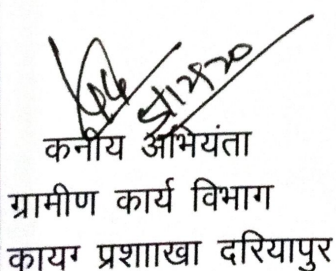 कनीय अभियंता
ग्रामीण कार्य विभाग
कायग प्रशााखा दरियापुर